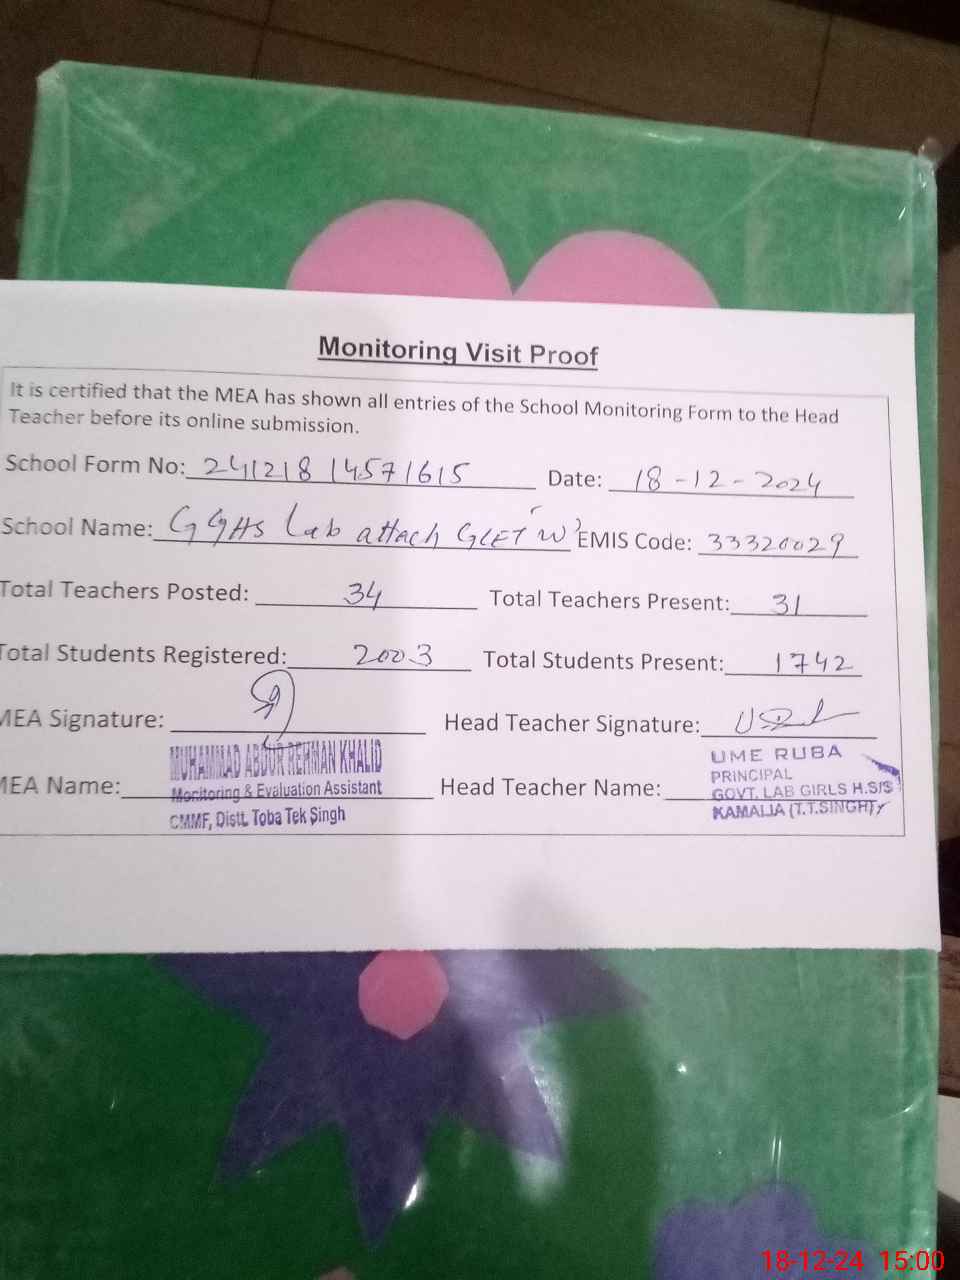 Monitoring Visit Proof
It is certified that the MEA has shown all entries of the School Monitoring Form to the Head
Teacher before its online submission.
School Form No: 24121814571615 Date: 18-12-2024
School Name: GGHS Lab attach GCET 'W' EMIS Code: 33320029
Total Teachers Posted: 34 Total Teachers Present: 31
Total Students Registered: 2003 Total Students Present: 1742
MEA Signature: Head Teacher Signature:
MEA Name: Head Teacher Name:
MUHAMMAD ABDUR REHMAN KHALID
Monitoring & Evaluation Assistant
CMMF, Distt. Toba Tek Singh
UME RUBA
PRINCIPAL
GOVT. LAB GIRLS H.S/S
KAMALIA (T.T.SINGH)
18-12-24 15:00